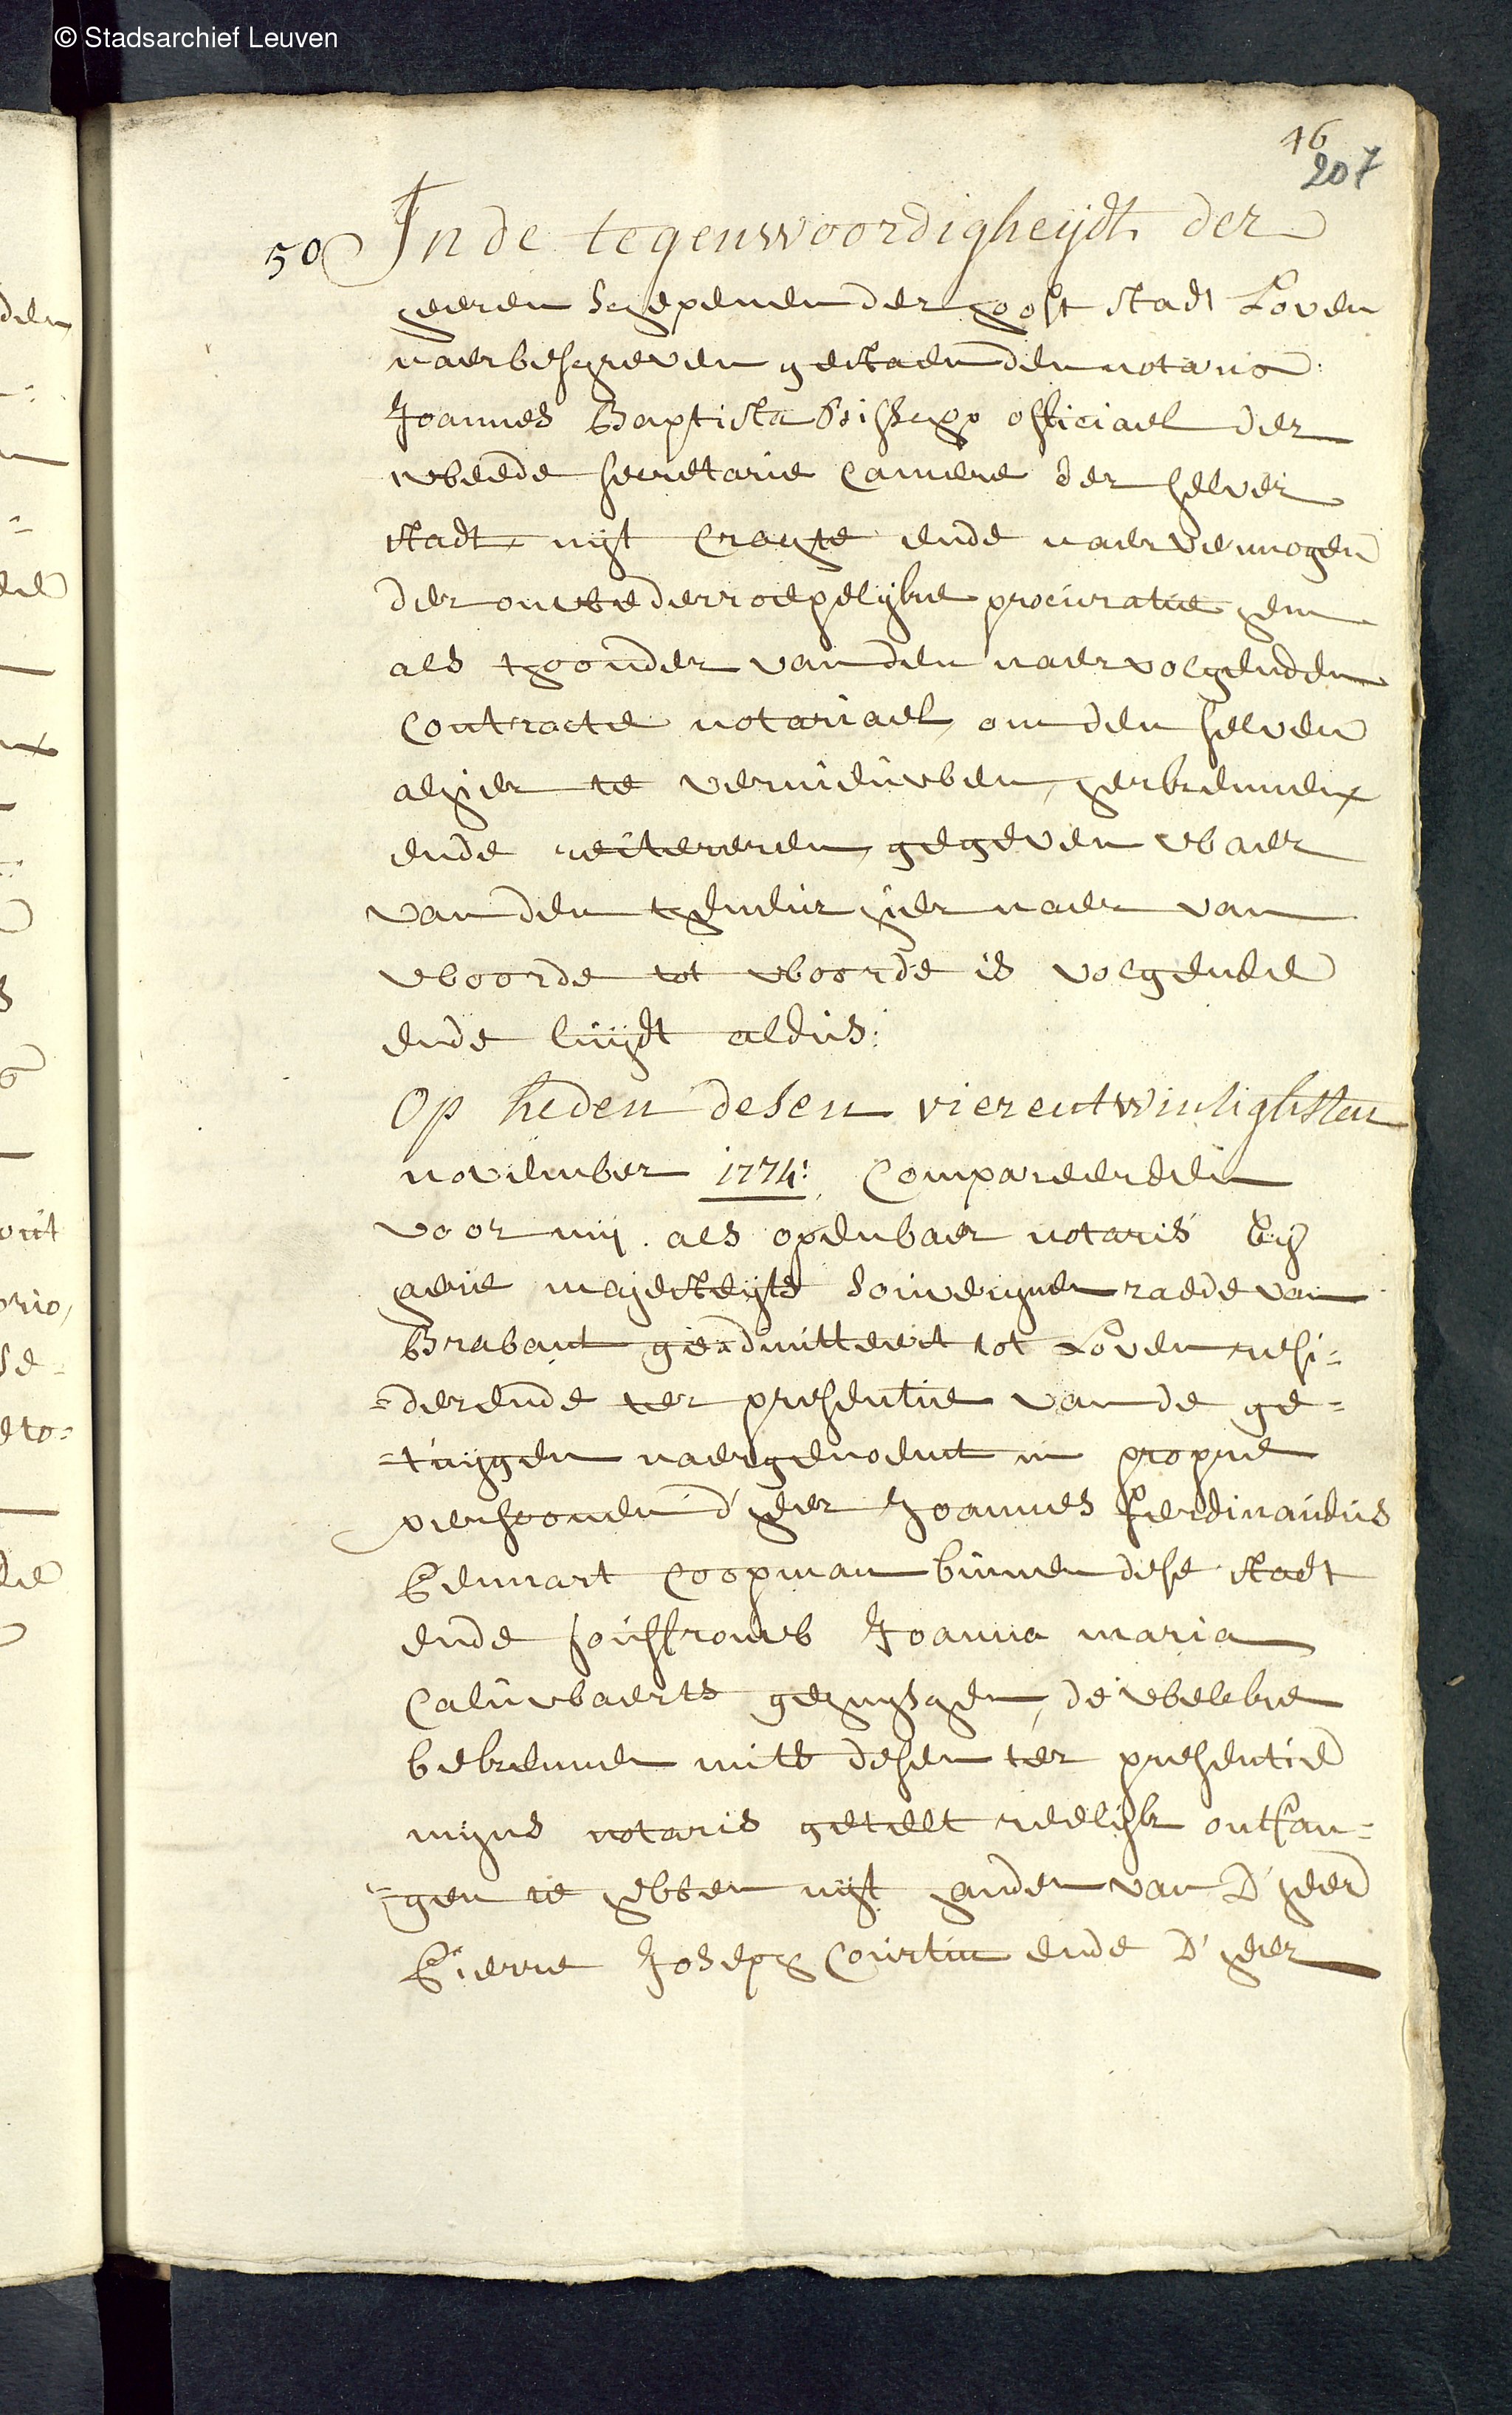 © Stadsarchief Leuven
16
207
50 In de tegenwoordigheijdt der
heeren schepenen der hooft stadt Loven
naerbeschreven gestaen den notaris
Joannes Baptista officiael der
tweede secretarie camere der selver
stadt, uijt crachte ende naer vermogen
der onwederroepelijke procuratie hem
als thoonder van den naervolgenden
contracte notariael, om den selven
alhier te vernieuwen, herkennen
ende reitereren, gegeven waer
van den theneur hier naer van
woorde tot woorde is volgende
ende luijdt aldus:
Op heden desen vierentwintighsten
november 1774: Compareerden
voor mij als openbaer notaris bij
haere majesteijts souvereijnen raede van
Brabant geadmitteert tot Loven resi=
=derende ter presentie van de ge=
=tuijgen naergenoemt in propre
persoonen d'heer Joannes Ferdinandus
Pennart coopman binnen dese stadt
ende jouffrouw Joanna maria
Caluwaerts gehuijsschen, de welke
bekennen mits desen ter presentie
mijns notaris getelt reelijk ontfan=
=gen te hebben uijt handen van D'heer
Pierre Joseph Courtin ende D'heer